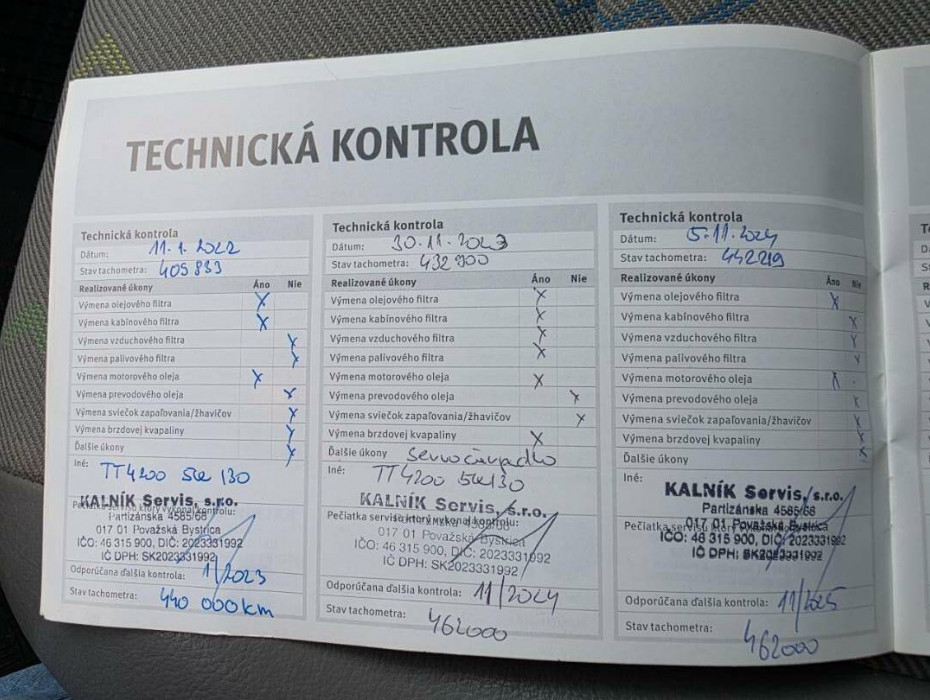 TECHNICKÁ KONTROLA
Technická kontrola
Dátum: 11.1.2022
Stav tachometra: 405 833
Realizované úkony Áno Nie
Výmena olejového filtra X
Výmena kabínového filtra X
Výmena vzduchového filtra X
Výmena palivového filtra X
Výmena motorového oleja X
Výmena prevodového oleja X
Výmena sviečok zapaľovania/žhavičov X
Výmena brzdovej kvapaliny X
Ďalšie úkony X
Iné: TT4200 5w 130
KALNÍK Servis, s.r.o.
Pečiatka servisu ktorý vykonal kontrolu:
Partizánska 4585/68
017 01 Považská Bystrica
IČO: 46 315 900, DIČ: 2023331992
IČ DPH: SK2023331992
Odporúčana ďalšia kontrola: 1/2023
Stav tachometra: 440 000km
Technická kontrola
Dátum: 30.11.2023
Stav tachometra: 432 900
Realizované úkony Áno Nie
Výmena olejového filtra X
Výmena kabínového filtra X
Výmena vzduchového filtra X
Výmena palivového filtra X
Výmena motorového oleja X
Výmena prevodového oleja X
Výmena sviečok zapaľovania/žhavičov X
Výmena brzdovej kvapaliny X
Ďalšie úkony
Iné: TT4200 5w130
KALNÍK Servis, s.r.o.
Pečiatka servisu ktorý vykonal kontrolu:
017 01 Považská Bystrica
IČO: 46 315 900, DIČ: 2023331992
IČ DPH: SK2023331992
Odporúčana ďalšia kontrola: 11/2024
Stav tachometra: 462000
Technická kontrola
Dátum: 5.11.2024
Stav tachometra: 442219
Realizované úkony Áno Nie
Výmena olejového filtra X
Výmena kabínového filtra X
Výmena vzduchového filtra X
Výmena palivového filtra X
Výmena motorového oleja X
Výmena prevodového oleja X
Výmena sviečok zapaľovania/žhavičov X
Výmena brzdovej kvapaliny X
Ďalšie úkony X
Iné:
KALNÍK Servis, s.r.o.
Partizánska 4585/68
Pečiatka servisu ktorý vykonal kontrolu:
017 01 Považská Bystrica
IČO: 46 315 900, DIČ: 2023331992
IČ DPH: SK2023331992
Odporúčana ďalšia kontrola: 11/2025
Stav tachometra: 462000